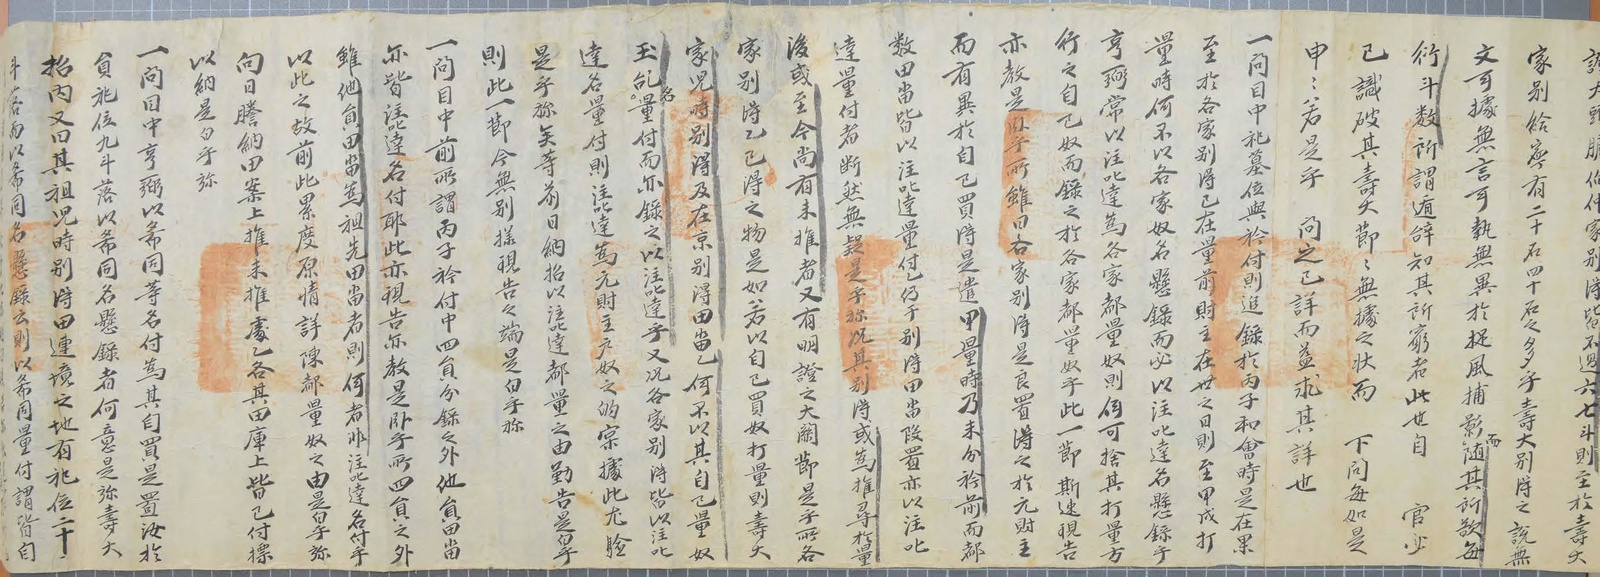 家別給齊有二十石四十石之多乎壽大別時之說無
文可據無言可執無異於捉風捕影而隨其所欲每
衍斗數所謂遁辭知其所窮者此也自 官必
已識破其壽大節節無據之狀而 下問每如是
申申若是乎 問之已詳而益求其詳也
一問目中祀墓位與於付則進錄於丙子和會時是在果
至於各家別得已在量前財主在世之日則至甲戌打
量時何不以各家奴名懸錄而必以注叱達名懸錄乎
亨弼常以注叱達為各家都量奴則何可捨其打量方
行之自己奴而錄之於各家都量奴乎此一節斯速現告
亦教是臥乎所雖曰各家別得是良置得之於元財主
而有異於自己買得是遣甲量時乃未分衿前而都
數田畓皆以注叱達量付已仍于別得田畓段置亦以注叱
達量付者斷然無疑是乎旀況其別得或為推尋於量
後或至今尚有未推者又有明證之大關節是乎所各
家別得乙己得之物是如若以自己買奴打量則壽大
家兒時別得及在京別得田畓乙何不以其自己量奴
玉乭名量付而亦錄之以注叱達乎又況各家別得皆以注叱
達名量付則注叱達為元財主戶奴之的實據此尤驗
是乎旀矣等前日納招以注叱達都量之由勤告是白乎
則此一節今無別㨾現告之端是白乎旀
一問目中前所謂丙子衿付中四員分錄之外他員田畓
亦皆注叱達名付耶此亦現告亦教是臥乎所四員之外
雖他員田畓為祖先田畓者則何者非注叱達名付乎
以此之故前此累度原情詳陳都量奴之由是白乎旀
向日謄納田案上推未推處乙各其田庫上皆已付標
以納是白乎旀
一問目中亨弼以希同等名付為其自買是置汝於
負祀位九斗落以希同名懸錄者何意是旀壽大
招內又曰其祖兒時別得田連境之地有祀位二十
斗落而以希同名懸錄云則以希同量付謂皆自